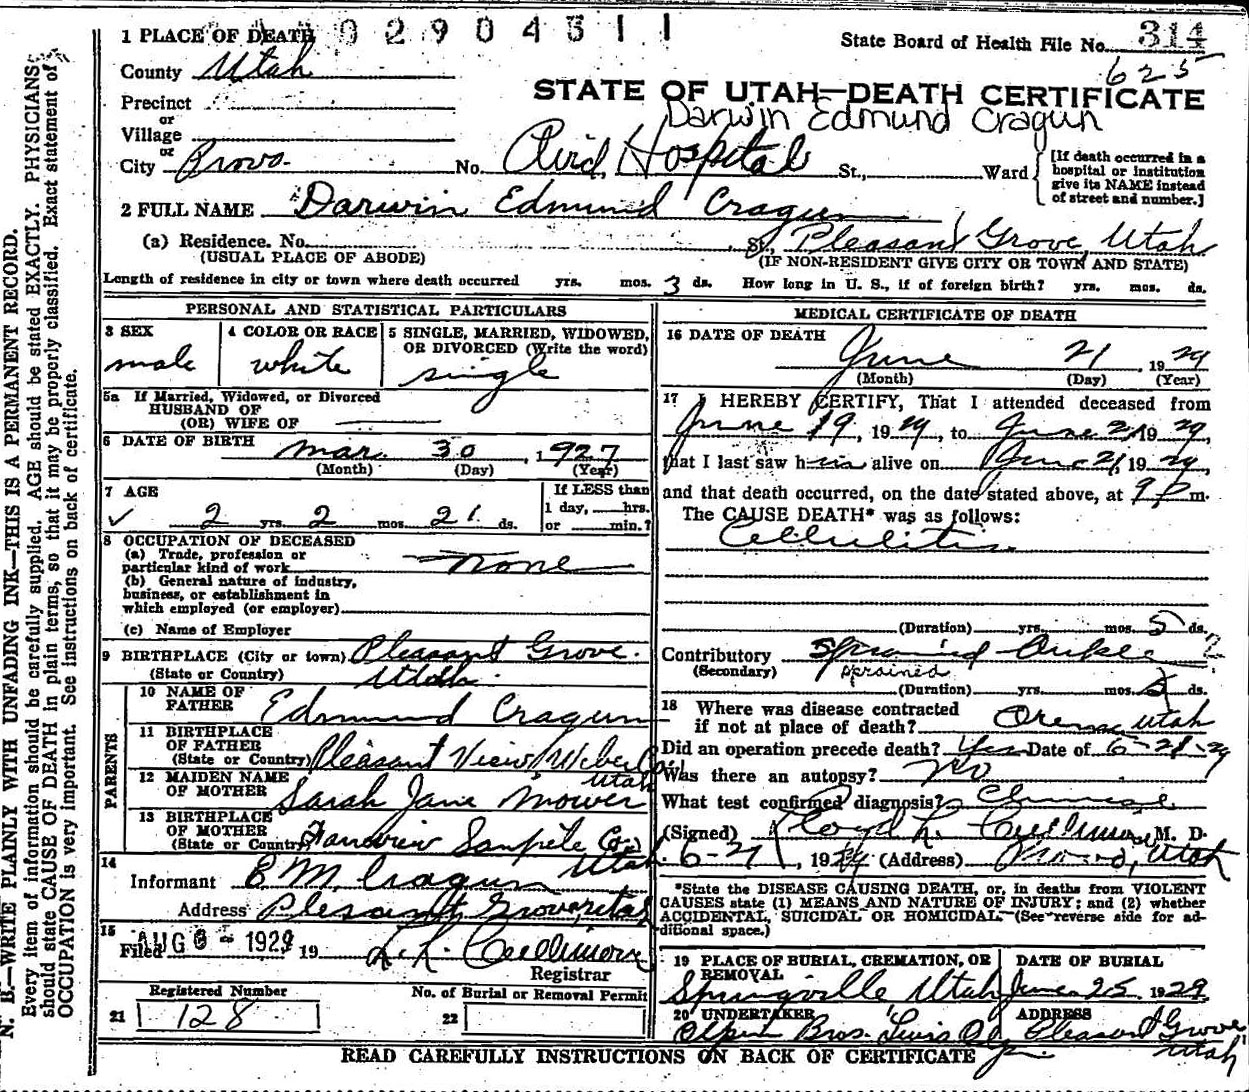 02904311
1 PLACE OF DEATH
State Board of Health File No. 314
County Utah
625
STATE OF UTAH—DEATH CERTIFICATE
Precinct
or
Darwin Edmund Cragun
Village
or
City Provo. No. Aird Hospital St., Ward
[If death occurred in a hospital or institution give its NAME instead of street and number.]
2 FULL NAME Darwin Edmund Cragun
(a) Residence. No. St., Pleasant Grove, Utah
(USUAL PLACE OF ABODE) (IF NON-RESIDENT GIVE CITY OR TOWN AND STATE)
Length of residence in city or town where death occurred yrs. mos. 3 ds. How long in U. S., if of foreign birth? yrs. mos. ds.
PERSONAL AND STATISTICAL PARTICULARS
3 SEX
male
4 COLOR OR RACE
white
5 SINGLE, MARRIED, WIDOWED, OR DIVORCED (Write the word)
single
5a If Married, Widowed, or Divorced
HUSBAND OF
(OR) WIFE OF
6 DATE OF BIRTH mar. 30, 1927
(Month) (Day) (Year)
7 AGE
2 yrs. 2 mos. 21 ds.
If LESS than
1 day, hrs.
or min.?
8 OCCUPATION OF DECEASED
(a) Trade, profession or
particular kind of work none
(b) General nature of industry,
business, or establishment in
which employed (or employer)
(c) Name of Employer
9 BIRTHPLACE (City or town) Pleasant Grove.
(State or Country) Utah.
PARENTS
10 NAME OF
FATHER Edmund Cragun
11 BIRTHPLACE
OF FATHER
(State or Country) Pleasant View Weber Co. Utah
12 MAIDEN NAME
OF MOTHER Sarah Jane Mower
13 BIRTHPLACE
OF MOTHER
(State or Country) Fairview Sanpete Co. Utah
14
Informant E M. Cragun
Address Plesant Grove, Utah
15
Filed AUG 6 - 1929 19 L. L. Cullimore
Registrar
Registered Number
21 128
No. of Burial or Removal Permit
22
MEDICAL CERTIFICATE OF DEATH
16 DATE OF DEATH
June 21, 1929
(Month) (Day) (Year)
17 I HEREBY CERTIFY, That I attended deceased from
June 19, 1929, to June 21 1929,
that I last saw him alive on June 21, 1929,
and that death occurred, on the date stated above, at 9 P m.
The CAUSE DEATH* was as follows:
Cellulitis
(Duration) yrs. mos. 5 ds.
Contributory Sprained Ankle
(Secondary) sprained
(Duration) yrs. mos. 5 ds.
18 Where was disease contracted
if not at place of death? Orem, Utah
Did an operation precede death? Yes Date of 6-21-29
Was there an autopsy? No
What test confirmed diagnosis? Clinical
(Signed) Lloyd L. Cullimore, M. D.
6-21, 1929 (Address) Provo, Utah
*State the DISEASE CAUSING DEATH, or, in deaths from VIOLENT
CAUSES state (1) MEANS AND NATURE OF INJURY; and (2) whether
ACCIDENTAL, SUICIDAL OR HOMICIDAL. (See reverse side for ad-
ditional space.)
19 PLACE OF BURIAL, CREMATION, OR
REMOVAL
Springville Utah
DATE OF BURIAL
June 25 1929
20 UNDERTAKER
Bros.
ADDRESS
Pleasant Grove
Utah
READ CAREFULLY INSTRUCTIONS ON BACK OF CERTIFICATE
N. B.—WRITE PLAINLY WITH UNFADING INK—THIS IS A PERMANENT RECORD.
Every item of information should be carefully supplied. AGE should be stated EXACTLY. PHYSICIANS
should state CAUSE OF DEATH in plain terms, so that it may be properly classified. Exact statement of
OCCUPATION is very important. See instructions on back of certificate.